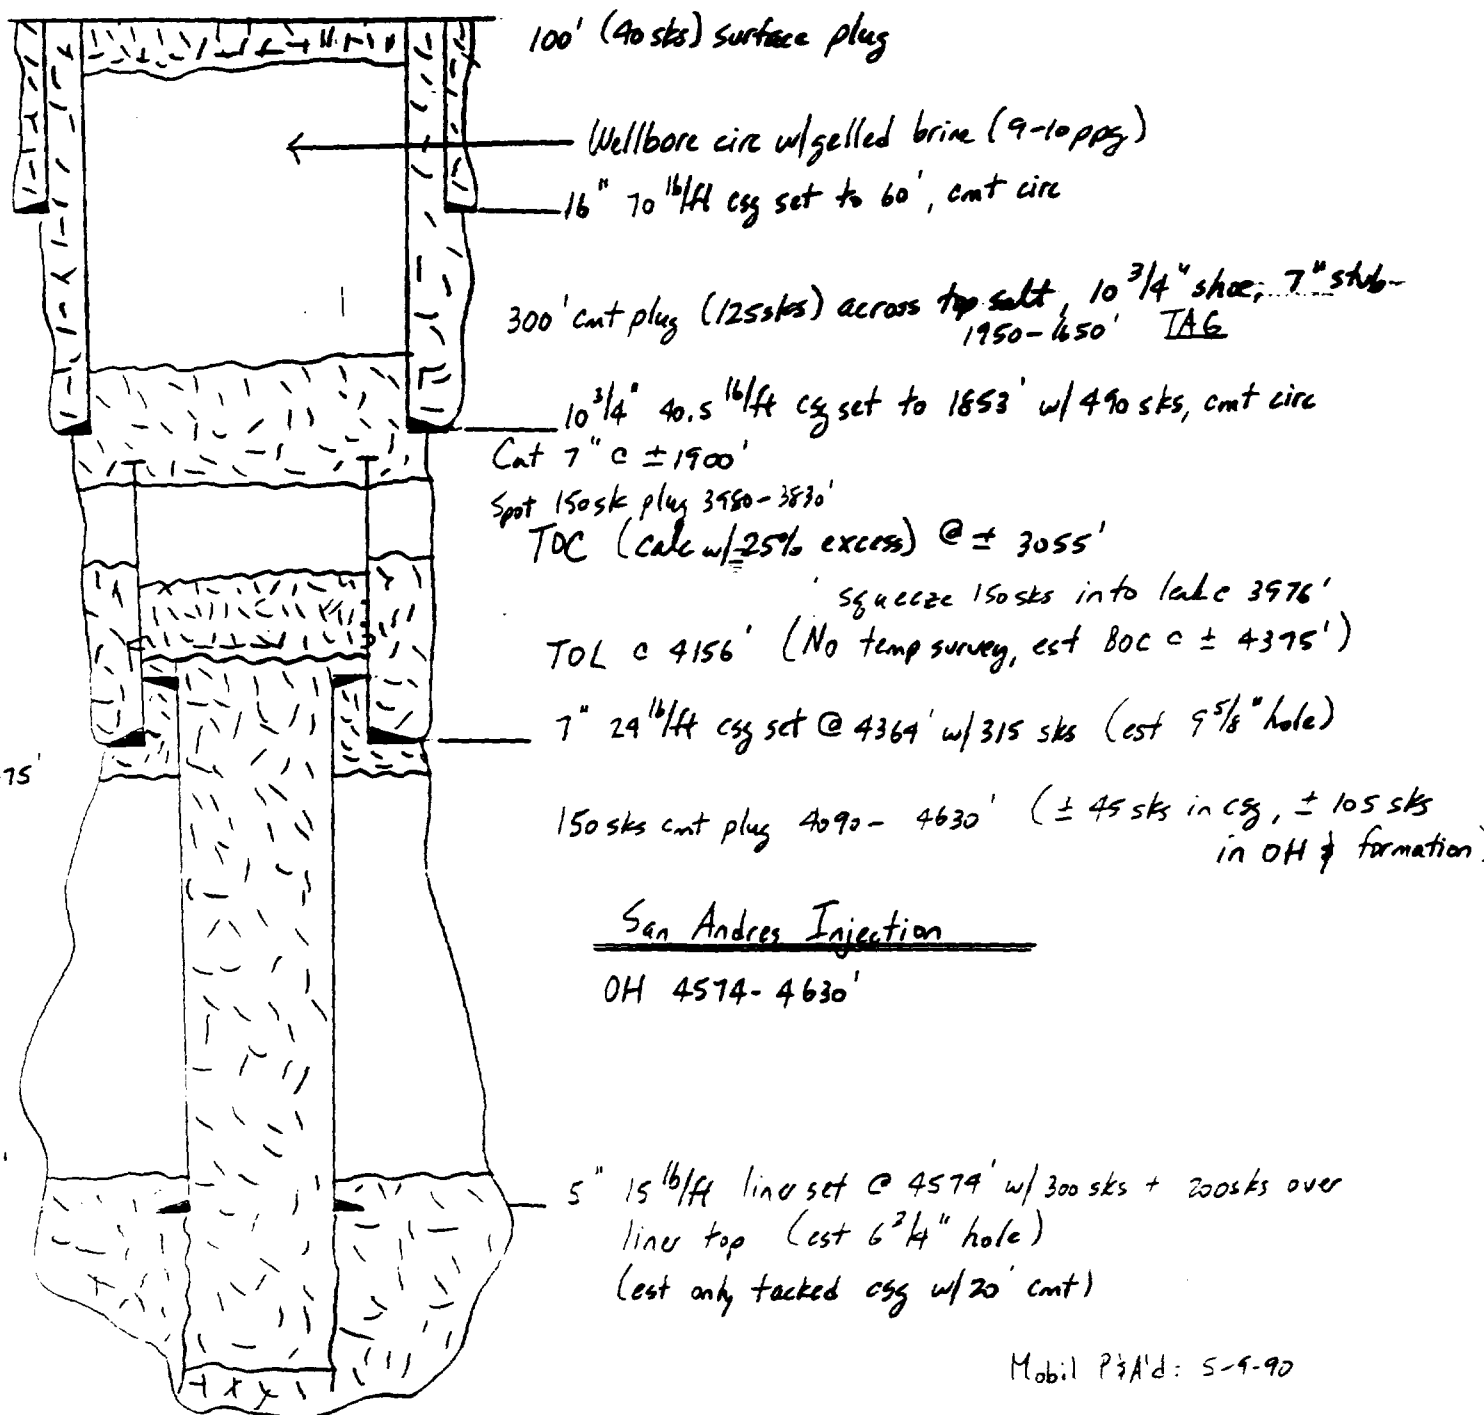 100' (40 sks) surface plug
Wellbore circ w/gelled brine (9-10 ppg)
16" 70 lb/ft csg set to 60', cmt circ
300' cmt plug (125sks) across top salt, 10 3/4" shoe, 7" stub-
1950-1650' TAG
10 3/4" 40.5 lb/ft csg set to 1853' w/ 490 sks, cmt circ
Cut 7" @ ±1900'
Spot 150sk plug 3980-3830'
TOC (calc w/25% excess) @ ± 3055'
squeeze 150 sks into leak @ 3976'
TOL @ 4156' (No temp survey, est BOC @ ± 4375')
7" 24 lb/ft csg set @ 4364' w/ 315 sks (est 9 5/8" hole)
75'
150 sks cmt plug 4090- 4630' (± 45 sks in csg, ± 105 sks
in OH & formation)
San Andres Injection
OH 4574- 4630'
5" 15 lb/ft liner set @ 4574' w/ 300 sks + 200sks over
liner top (est 6 3/4" hole)
(est only tacked csg w/20' cmt)
Mobil P&A'd: 5-9-90